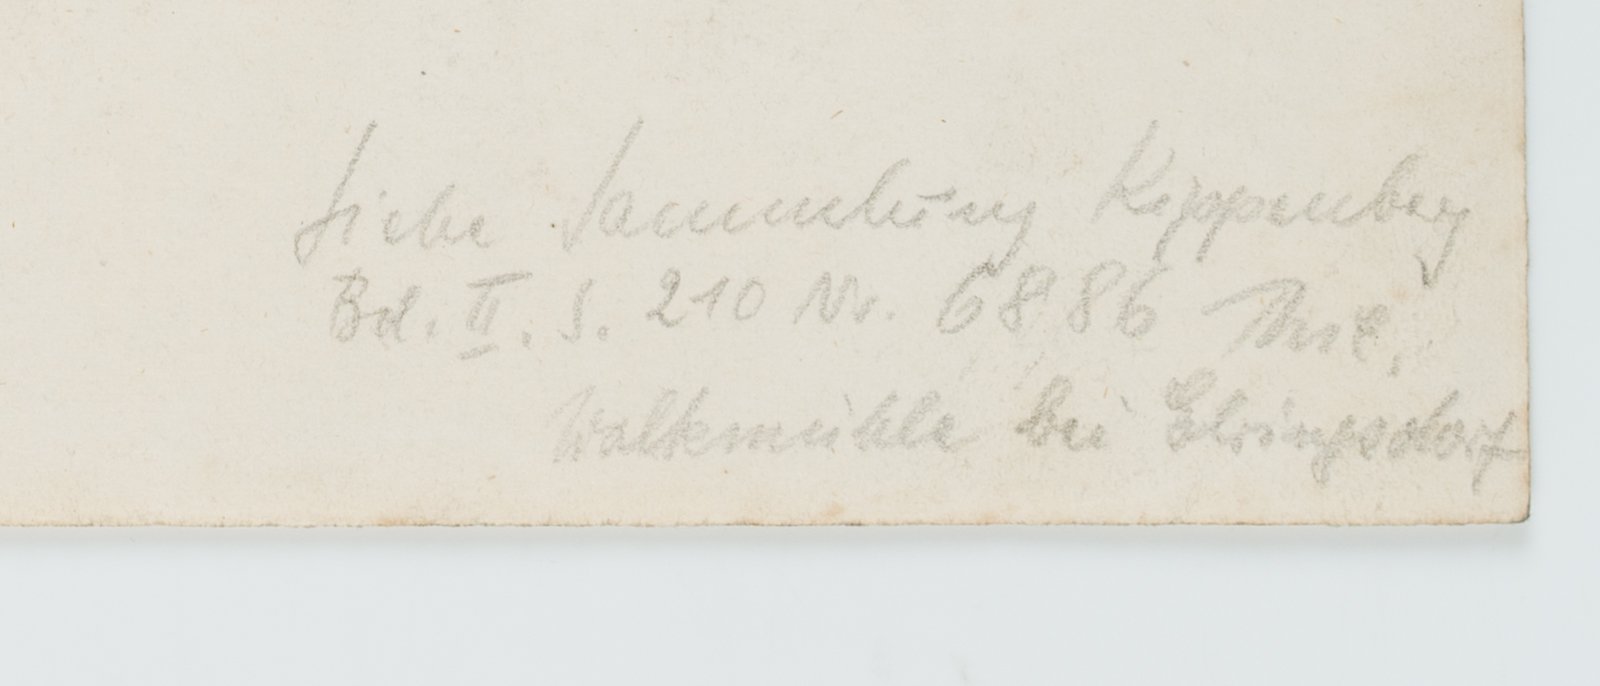 Siehe Sammlung Kippenberg
Bd. II. S. 210 Nr. 6886
Walkmühle bei Ehringsdorf